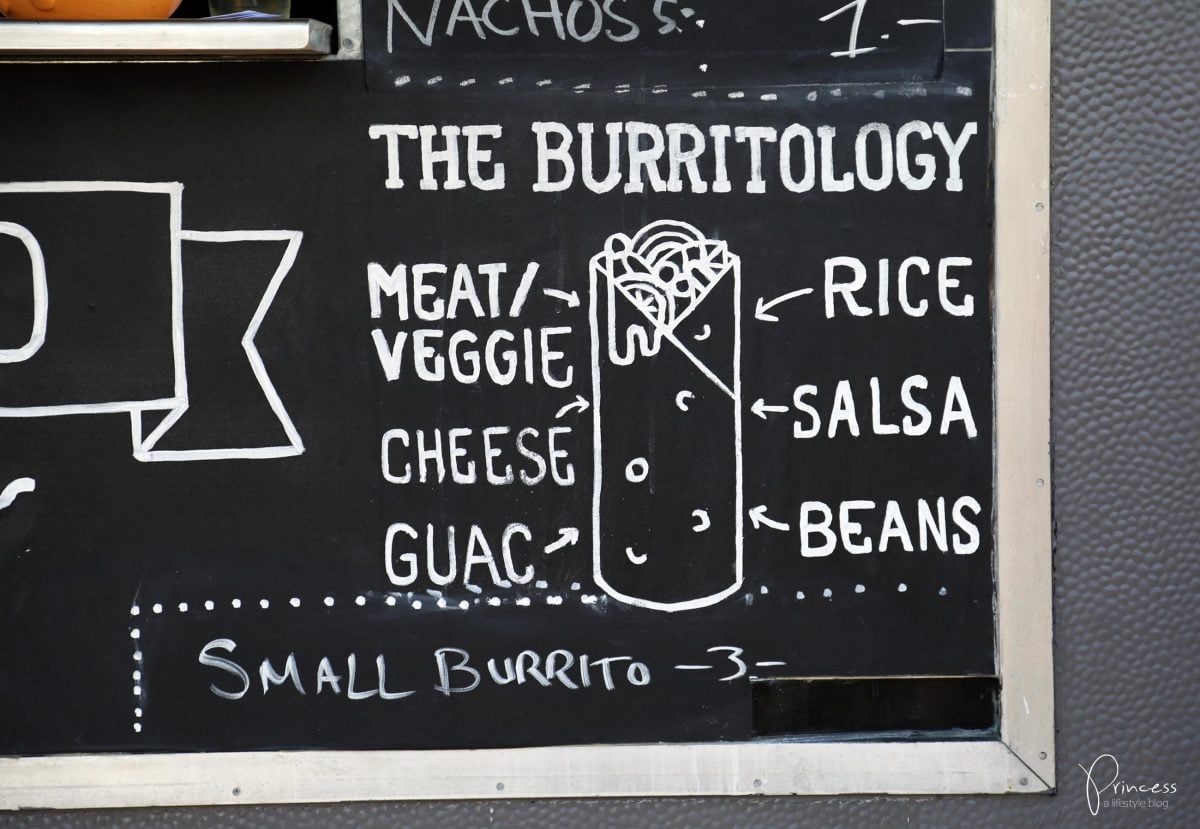 NACHOS 5.- 1.-
THE BURRITOLOGY
MEAT/
VEGGIE
CHEESE
GUAC
RICE
SALSA
BEANS
SMALL BURRITO -3-
Princess
a lifestyle blog